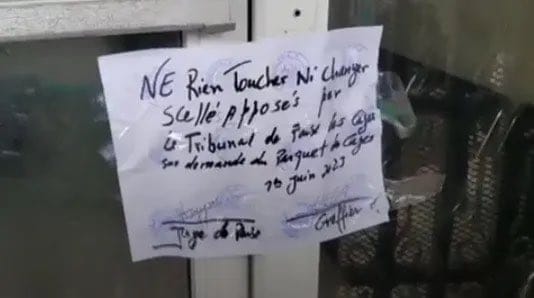 NE Rien Toucher Ni changer
Scellé Apposés par
Le Tribunal de Paix des Cayes
sur demande du Parquet des Cayes
juin 2023
Juge de Paix
Greffier